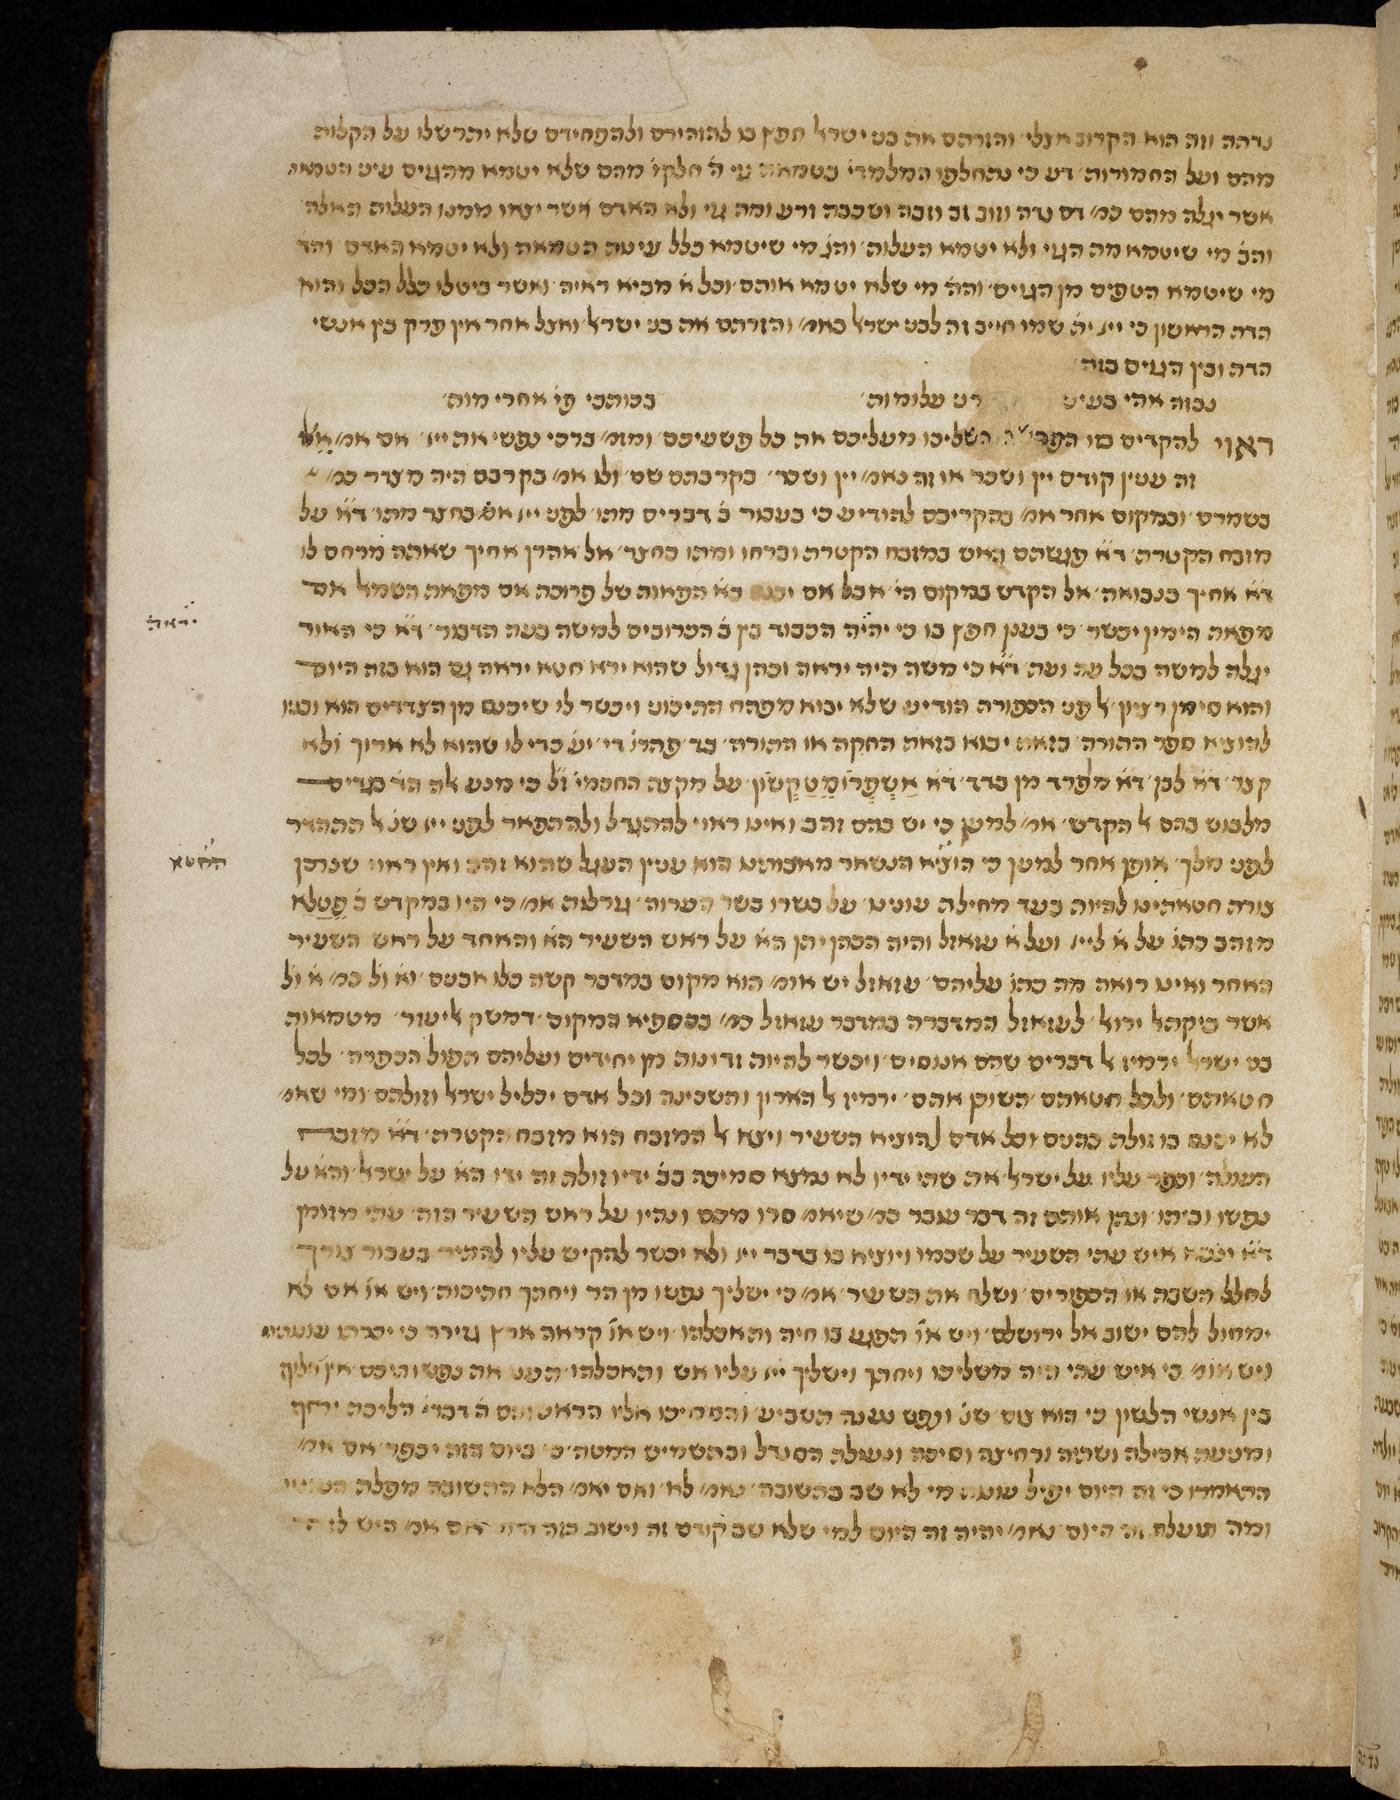 נדהה וזה הוא הקרוב אצלי והזרתם את בני ישראל חפץ בו להזהירם ולהפחידם שלא יתרשלו על הקלות
מהם ועל החמורות דע כי נתחלפו המלמדי בטמאת עי ה חלקי מהם שלא יטמא מהגוים עינו הטמאה
אשר יגלה מהם כמ דם נדה וזוב זב וזבה ושכבה זרע ומה גוי ולא האדם אשר יצאו ממנו העלות האלה
והב מי שיטמא מה הגוי ולא יטמא העלות והג מי שיטמא כלל עיטה הטמאה ולא יטמא האדם והד
מי שיטמא הטפים מן הגוים והה מי שלא יטמא אותם וכל א מביא ראיה ואשר ביטלו כלל הכל והוא
הדת הראשון כי ייי יה שמו חייב זה לבני ישראל באמ והזרתם את בני ישראל ואצל אחר אין פרק בין אנשי
הדת ובין הגוים בזה
נבזה אהי בעיני דע עלומות בכותבי פי אחרי מות
ראוי להקדים בו השליכו מעליכם את כל פשעיכם ומזמ ברכי נפשי את ייי אם אמ אל
זה ענין קודם יין ושכר או זה נאמ יין ושכר בקרבתם שם ולו אמ בקרבם היה מצדר כמ
בשמרם ובמקום אחר אמ בהקריבם להודיע כי בעבור ב דברים מתו לפני ייי אש בחצר מתו דא על
מזבח הקטרת דא פגשתם האש במזבח הקטרת וברחו ומתו בחצר אל אהרן אחיך שאתה מרחם לו
דא אחיך בנבואה אל הקדש במקום הי אבל אם יכנס בא הפאות של פרוכה אם מפאת השמאל אם
מפאת הימין יכשר כי בענן חפץ בו כי יהיה הכבוד בין ב הכרובים למשה בעת הדבור דא כי האור
יגלה למשה בכל עת ועת דא כי משה היה יראה וכהן גדול שהוא ירא חטא יראה גם הוא בזה היום
והוא סימן רציון אל פני הכפורת הודיע שלא יבוא מפתח התיכוני ויכשר לו שיכנס מן הצדדים הוא ובניו
להוציא ספר התורה בזאת יבוא בזאת החקה או התורה בד פתרו די יע כדי לו שהוא לא ארוך ולא
קצר דא לבן דא מפרד מן בדד דא אשפרומטקסון על מקצת החכמי זל כי מנע לה הד בגדים
מלבוש בהם אל הקדש אמ למען כי יש בהם זהב ואינו ראוי להתגדל ולהתפאר לפני ייי שנ אל תתהדר
לפני מלך אופן אחר למען כי הוציא הנשאר מאבותינו הוא ענין העגל שהוא זהב ואין ראוי שנרקן
צורה חטאתינו להיות בעד מחילת עונינו על בשרו בשר הערוה גורלות אמ כי היו במקדש ב פטלא
מזהב כתו על א לייי ועל א עזאזל והיה הכהן יתן הא על ראש השעיר הא והאחד על ראש השעיר
האחר ואינו רואה מה כתו עליהם עזאזל יש אומ הוא מקום במדבר קשה כלו אבנים וא ול כמ א ול
אשר ביקתאל ירואל לעזאזל המדברה במדבר עזאזל כמ בכספיא המקום דמשק אליעזר מטמאות
בני ישראל ירמיז אל דברים שהם אנוסים ויכשר להיות זדונות מן יחידים ועליהם תפול הכפרה לכל
חטאתם ולכל חטאתם השוכן אתם ירמיז אל הארון והשכינה וכל אדם יכליל ישראל וזולתם ומי שאמ
לא יכנס בו זולת כהנים וכל אדם להוציא השעיר ויצא אל המזבח הוא מזבח הקטרת דא מזבח
העולה וכפר עליו על ישראל את שתי ידיו לא נמצא סמיכה בב ידיו זולת זה ידו הא על ישראל והא על
נפשו וביתו ונתן אותם זה דבר עובר כמ שיאמ סרו מכם ונהיו על ראש השעיר הזה עתי מזומן
דא ימצא איש עתי השעיר על שכמו ויוציא בו בדבר ייי ולא יכשר להקיש עליו להתיר בעבור צורך
לחלל השבת או הכפורים ושלח את השעיר אמ כי ישליך נפשו מן הר ויחתך חתיכות ויש או אם לא
ימחול להם ישוב אל ירושלם ויש או הפגע בו חיה והאכלהו ויש או קראה ארץ גזירה כי יכרתו עונותיו
ויש אומ כי איש עתי היה משליכו ויחתך וישליך ייי עליו אש והאכלהו העני את נפשותיכם אין חלוף
בין אנשי הלשון כי הוא צום שנ ונפש נענה תשביע והסמיכו אליו הראשונים ה דברי הליכה יחף
ומניעה אכילה ושתיה ורחיצה וסיכה ונעילת הסנדל ובתשמיש המטה כי ביום הזה יכפר אם אמ
האמרו כי זה היום יפיל עונות מי לא שב בתשובה נאמ לא ואם יאמ הלא התשובה מפלת העונות
ומה תועלת זה היום נאמ יהיה זה היום למי שלא שב קודם זה וישוב בזה היום אם אמ היש לו
יראה
החטא